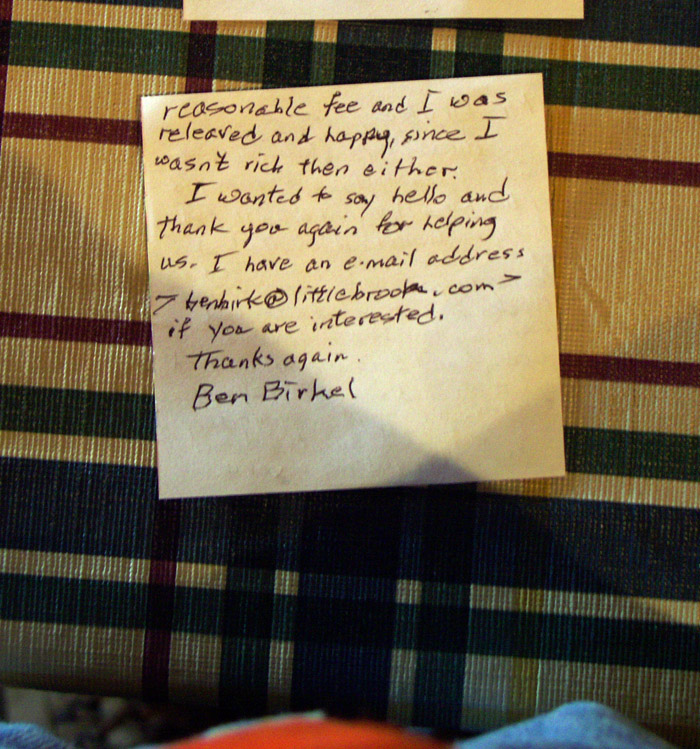 reasonable fee and I was
releaved and happy, since I
wasn't rich then either.
I wanted to say hello and
thank you again for helping
us. I have an e-mail address
> benbirk@littlebrook.com >
if you are interested.
Thanks again.
Ben Birkel